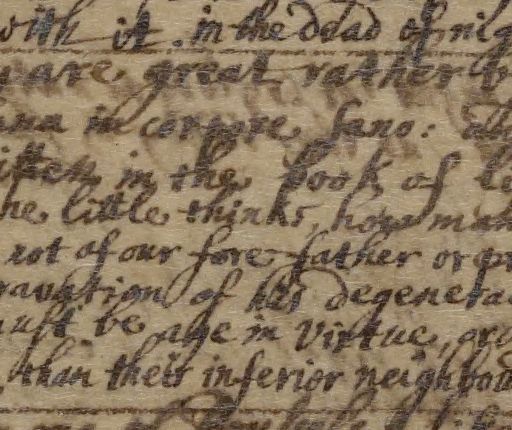 with it in the dead of nig
are great rather
in corpore sano:
in the book of
he little thinks, how man
not of our fore-father or pr
ravation of his degenera
must be age in virtue, or
than their inferior neighbou